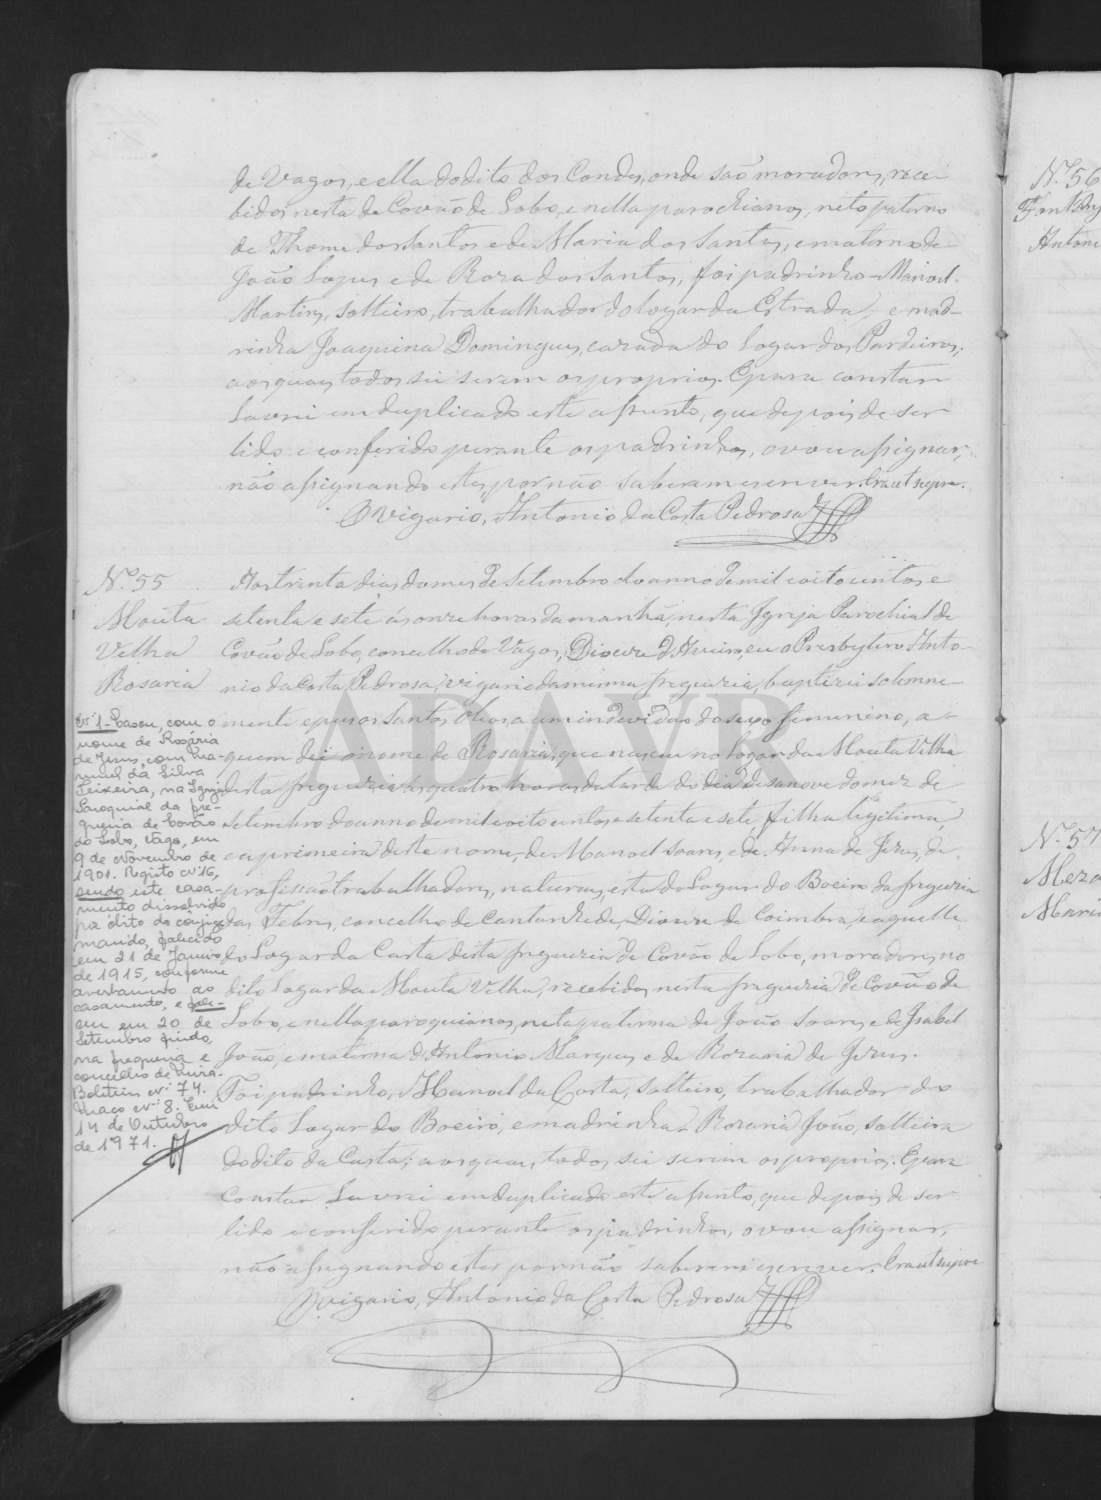 de Vagos, e ella do dito dos Condes, onde são moradores, rece-
bidos nesta de Covão de Lobo, e nella parochianos, neto paterno
de Thome dos Santos e de Maria dos Santos, e materno de
João Lopes e de Roza dos Santos, foi padrinho Manoel
Martins, solteiro, trabalhador do logar da Estrada, e mad-
rinha Joaquina Domingues, cazada do Logar dos Pardeiros;
aos quaes todos sei serem os proprios. E para constar
Lavrei em duplicado este assento, que depois de ser
lido e conferido perante os padrinhos, o vou assignar,
não assignando estes por não saberem escrever. Era ut supra.
O Vigario, Antonio da Costa Pedrosa
Nº 55
Mouta
Velha
Rosaria
Aos trinta dias do mes de Setembro do anno de mil oito centos e
setenta e sete ás onze horas da manhã, nesta Igreja Parochial de
Covão de Lobo, concelho de Vagos, Diocese d'Aveiro, eu o Presbytero Anto-
nio da Costa Pedrosa, vigario da mesma freguezia, baptizei solemne-
mente e puz os Santos Oleos a um individuo do sexo femenino, a
quem dei o nome de Rosaria, que nasceu no Logar da Mouta Velha
desta freguezia ás quatro horas da tarde do dia desanove do mez de
Setembro do anno de mil oito centos e setenta e sete, filha legitima,
e a primeira deste nome, de Manoel Soares, e de Anna de Jezus, de
profissão trabalhadores, naturaes, esta do Logar do Boeiro da freguezia
das Febres, concelho de Cantanhede, Diocese de Coimbra, e aquelle
do Logar da Carta desta freguezia de Covão de Lobo, moradores no
dito Logar da Mouta Velha, recebidos nesta freguezia de Covão de
Lobo, e nella paroquianos, neta paterna de João Soares e de Isabel
João, e materna d'Antonio Marques e de Rozaria de Jezus.
Foi padrinho, Manoel da Costa, solteiro, trabalhador do
dito Logar do Boeiro, e madrinha Rozaria João, solteira
do dito da Carta; aos quaes todos sei serem os proprios. E para
Constar Lavrei em duplicado este assento, que depois de ser
lido e conferido perante os padrinhos, o vou assignar,
não assignando estes por não saberem escrever. Era ut supra
O Vigario, Antonio da Costa Pedrosa
Nº 1 - Casou, com o
nome de Rosária
de Jesus, com Ma-
nuel da Silva
Teixeira, na Igreja
Paroquial da fre-
guesia de Covão
do Lobo, Vagos, em
9 de Novembro de
1901. Registo nº 16,
sendo este casa-
mento dissolvido
por óbito do cônjuge
marido, falecido
em 21 de Janeiro
de 1915, conforme
averbamento ao
casamento, e fale-
ceu em 20 de
Setembro findo,
na freguesia e
concelho de Mira.
Boletim nº 74.
Maço nº 8. Em
14 de Outubro
de 1971.
Nº 56
Antoni
Nº 57
ADAVR